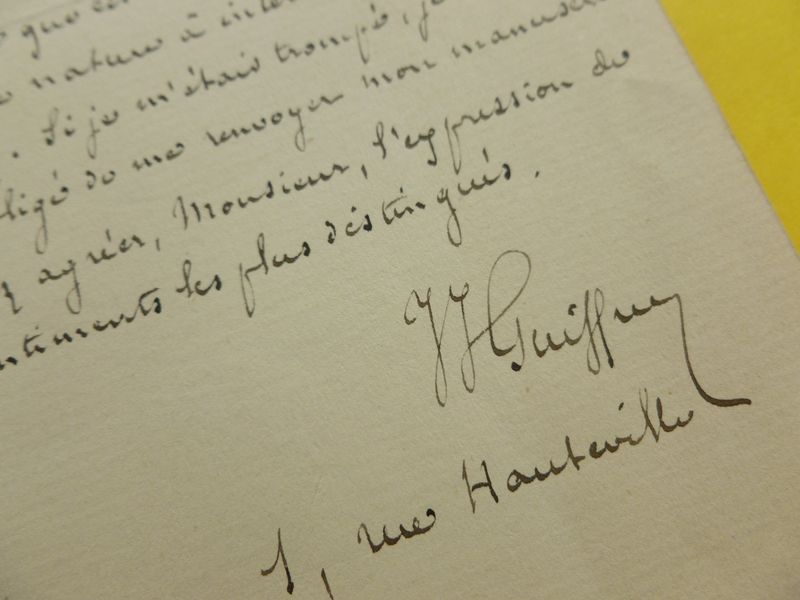 que ce
nature à inter
. Si je m'étais trompé, je
ligé de me renvoyer mon manusc
agréer, Monsieur, l'expression de
ntiments les plus distingués.
JJ Guiffrey
1, rue Hauteville